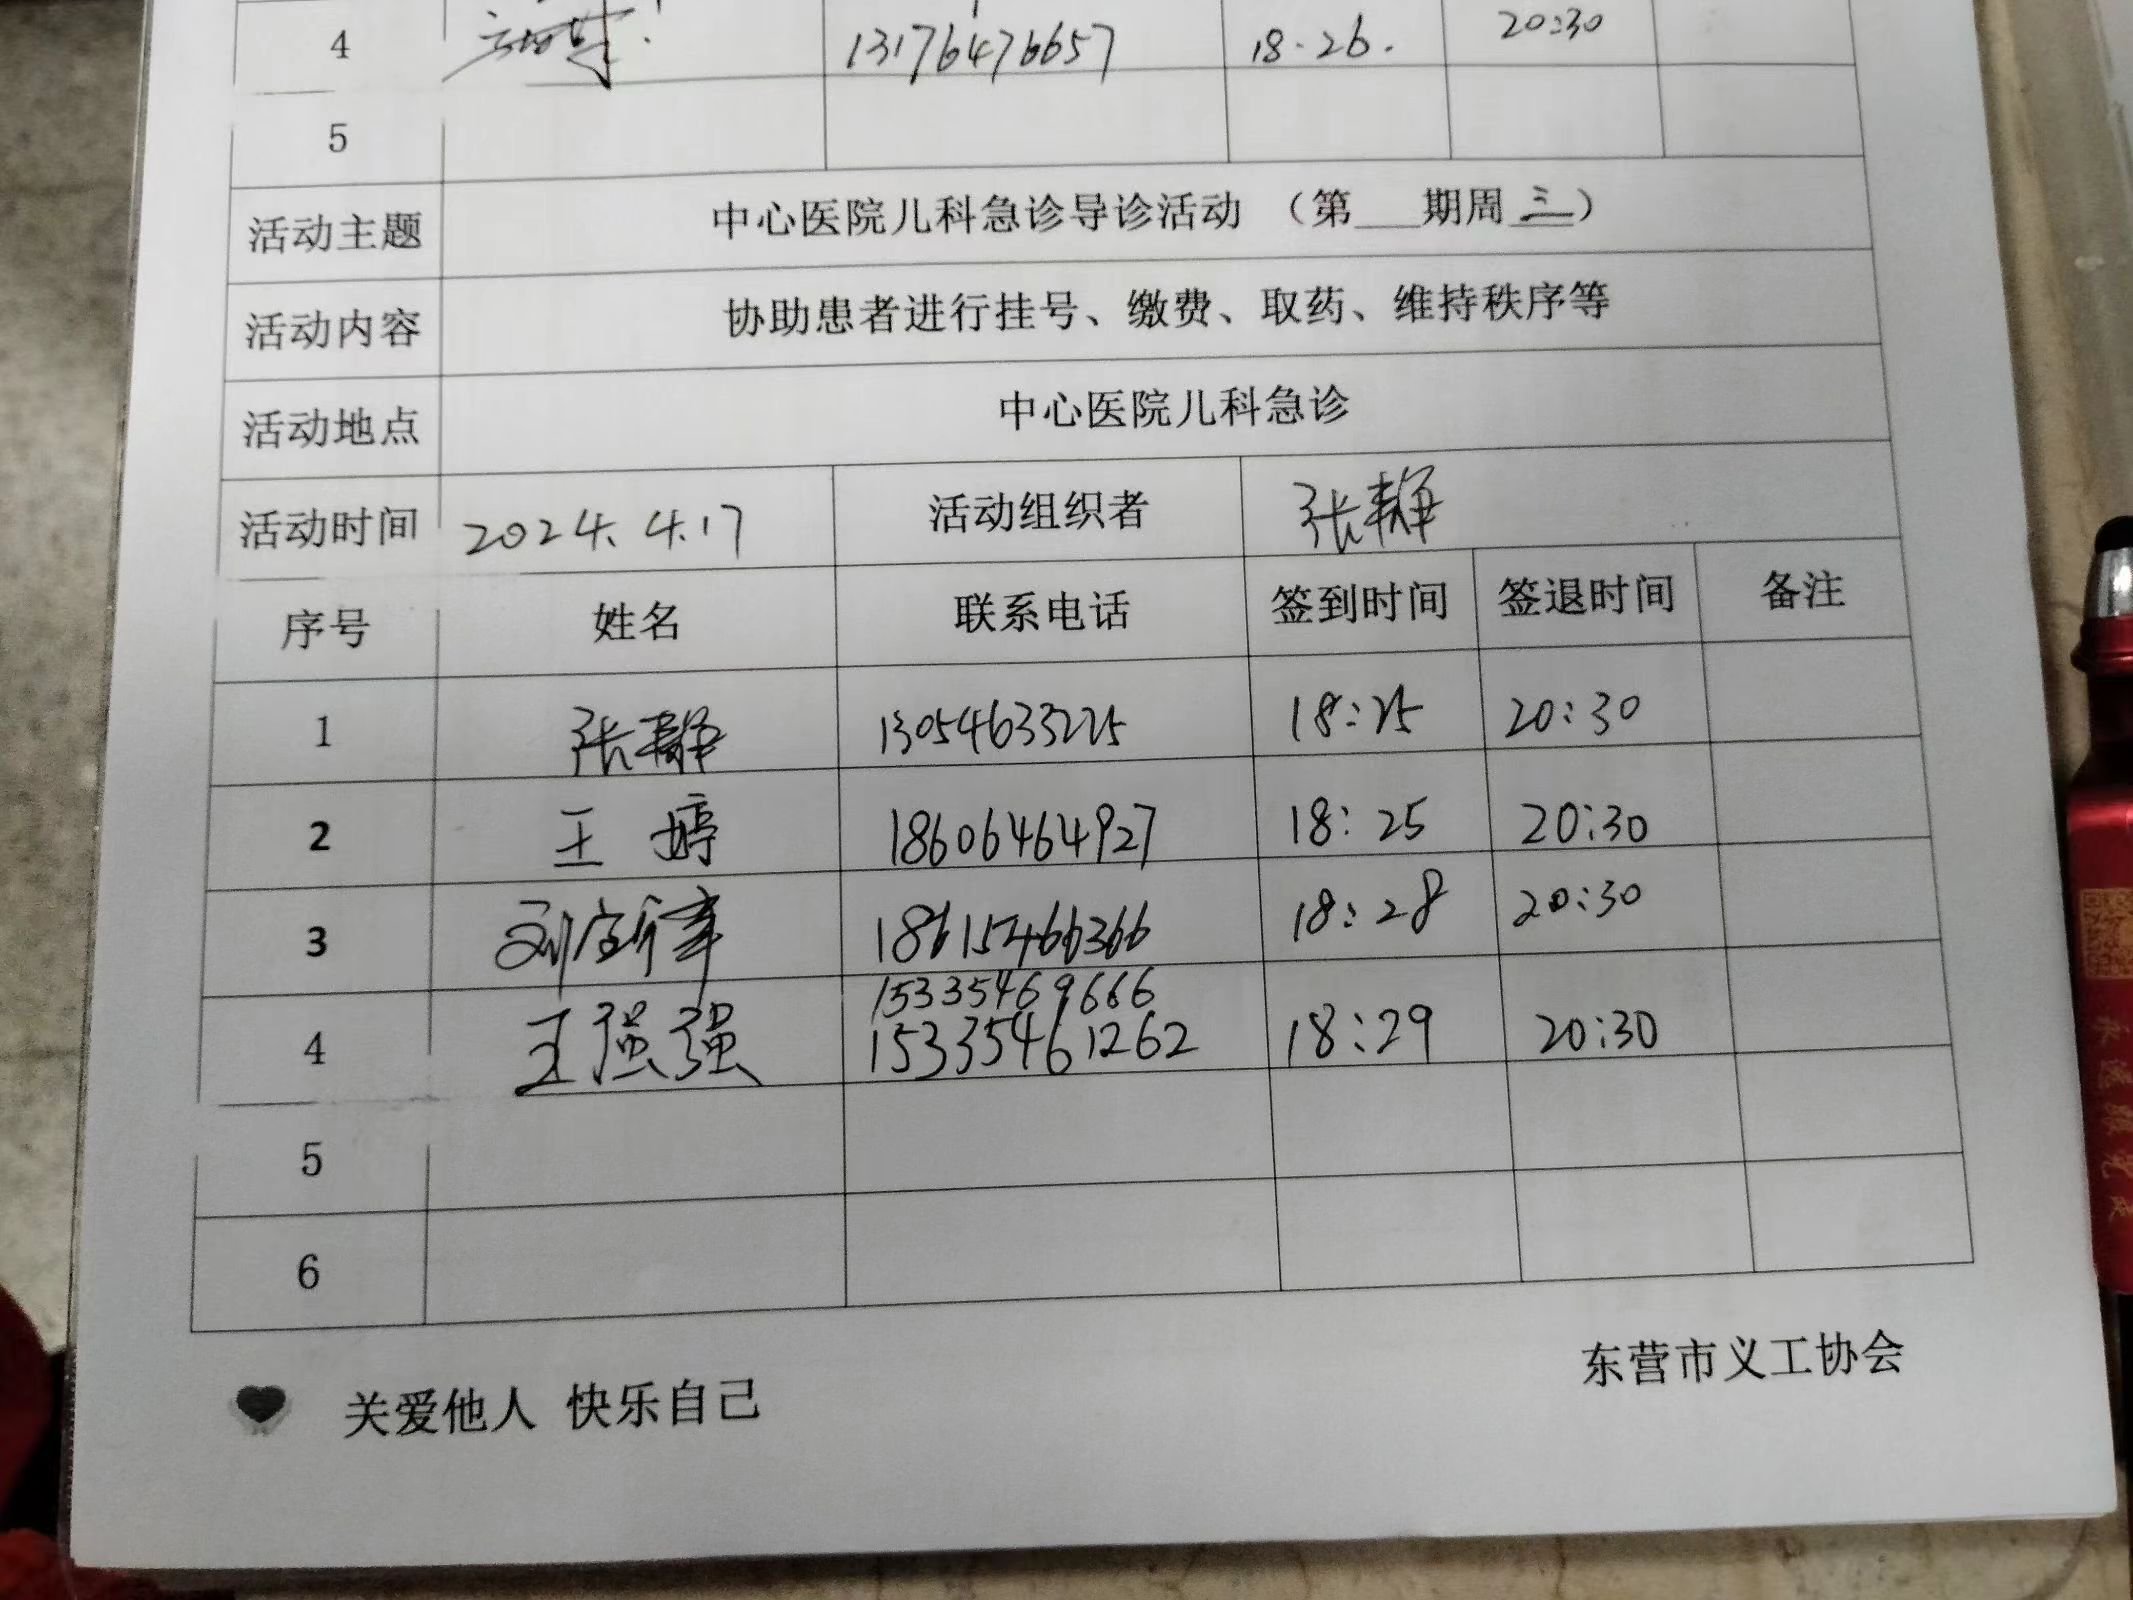 4 13176476657 18.26. 20:30
5
活动主题 中心医院儿科急诊导诊活动 （第___期周三）
活动内容 协助患者进行挂号、缴费、取药、维持秩序等
活动地点 中心医院儿科急诊
活动时间 2024.4.17 活动组织者 张静
序号 姓名 联系电话 签到时间 签退时间 备注
1 张静 13054633225 18:25 20:30
2 王婷 18606464927 18:25 20:30
3 18615466366 18:28 20:30
15335469666
4 王强强 15335461262 18:29 20:30
5
6
东营市义工协会
关爱他人 快乐自己